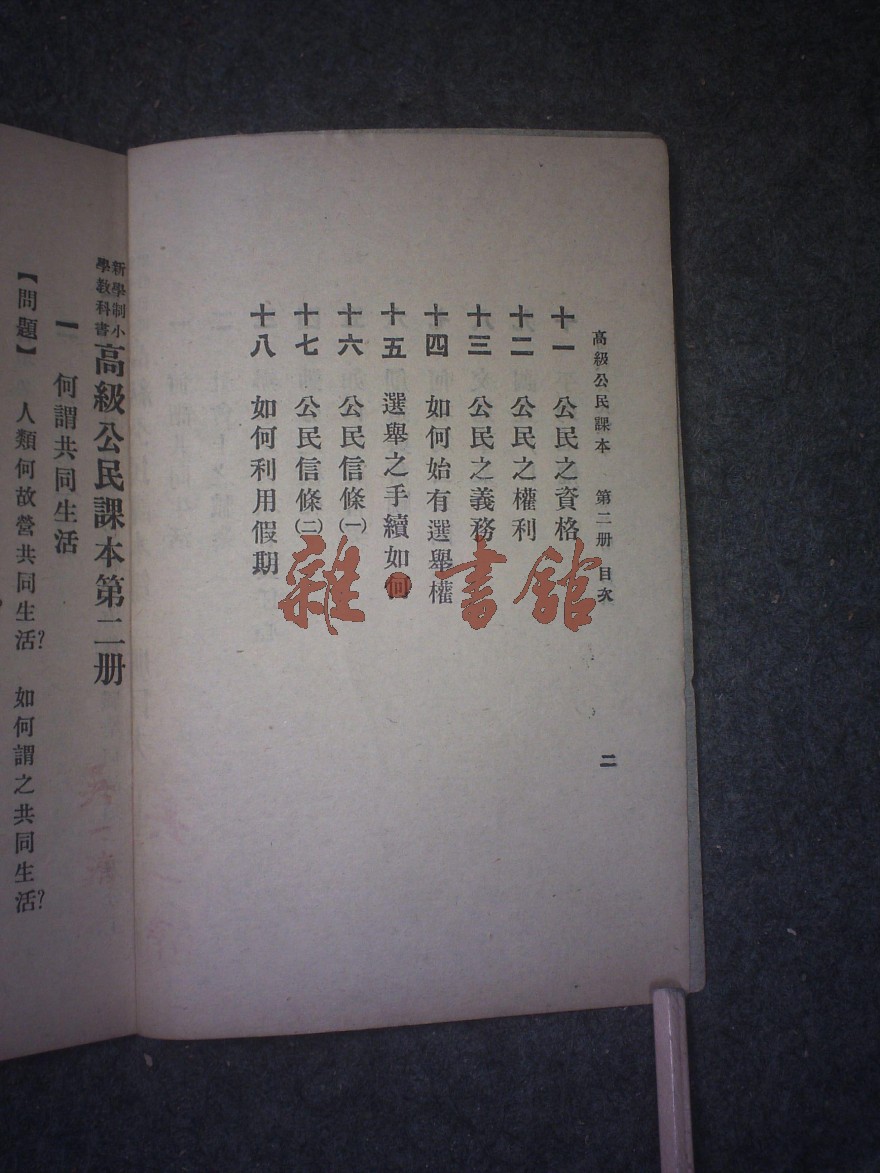 高級公民課本 第二册 目次
二
十一 公民之資格
十二 公民之權利
十三 公民之義務
十四 如何始有選舉權
十五 選舉之手續如何
十六 公民信條(一)
十七 公民信條(二)
十八 如何利用假期
雜·書館
新學制小
學教科書
高級公民課本第二册
一 何謂共同生活
【問題】 人類何故營共同生活? 如何謂之共同生活?